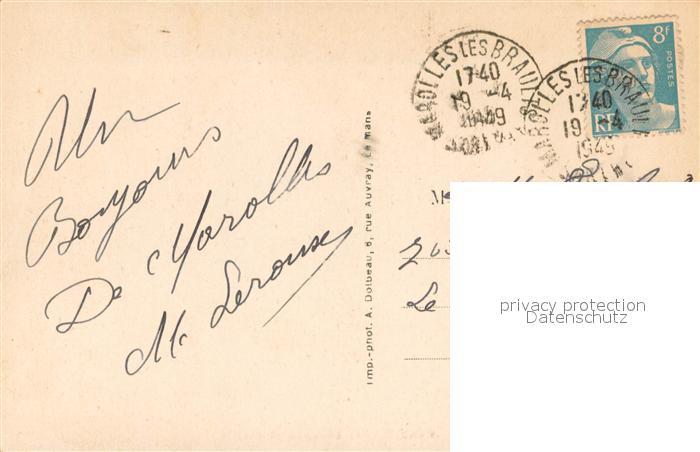 Un
Bonjour
De Marolles
M. Lerouse
Imp.-phot. A. Dolbeau, 6, rue Auvray, Le Mans
MAROLLES LES BRAULT
17 40
19 -4
1949
MAROLLES LES BRAULT
17 40
19 -4
1949
8F
POSTES
RF
M
Le
privacy protection
Datenschutz